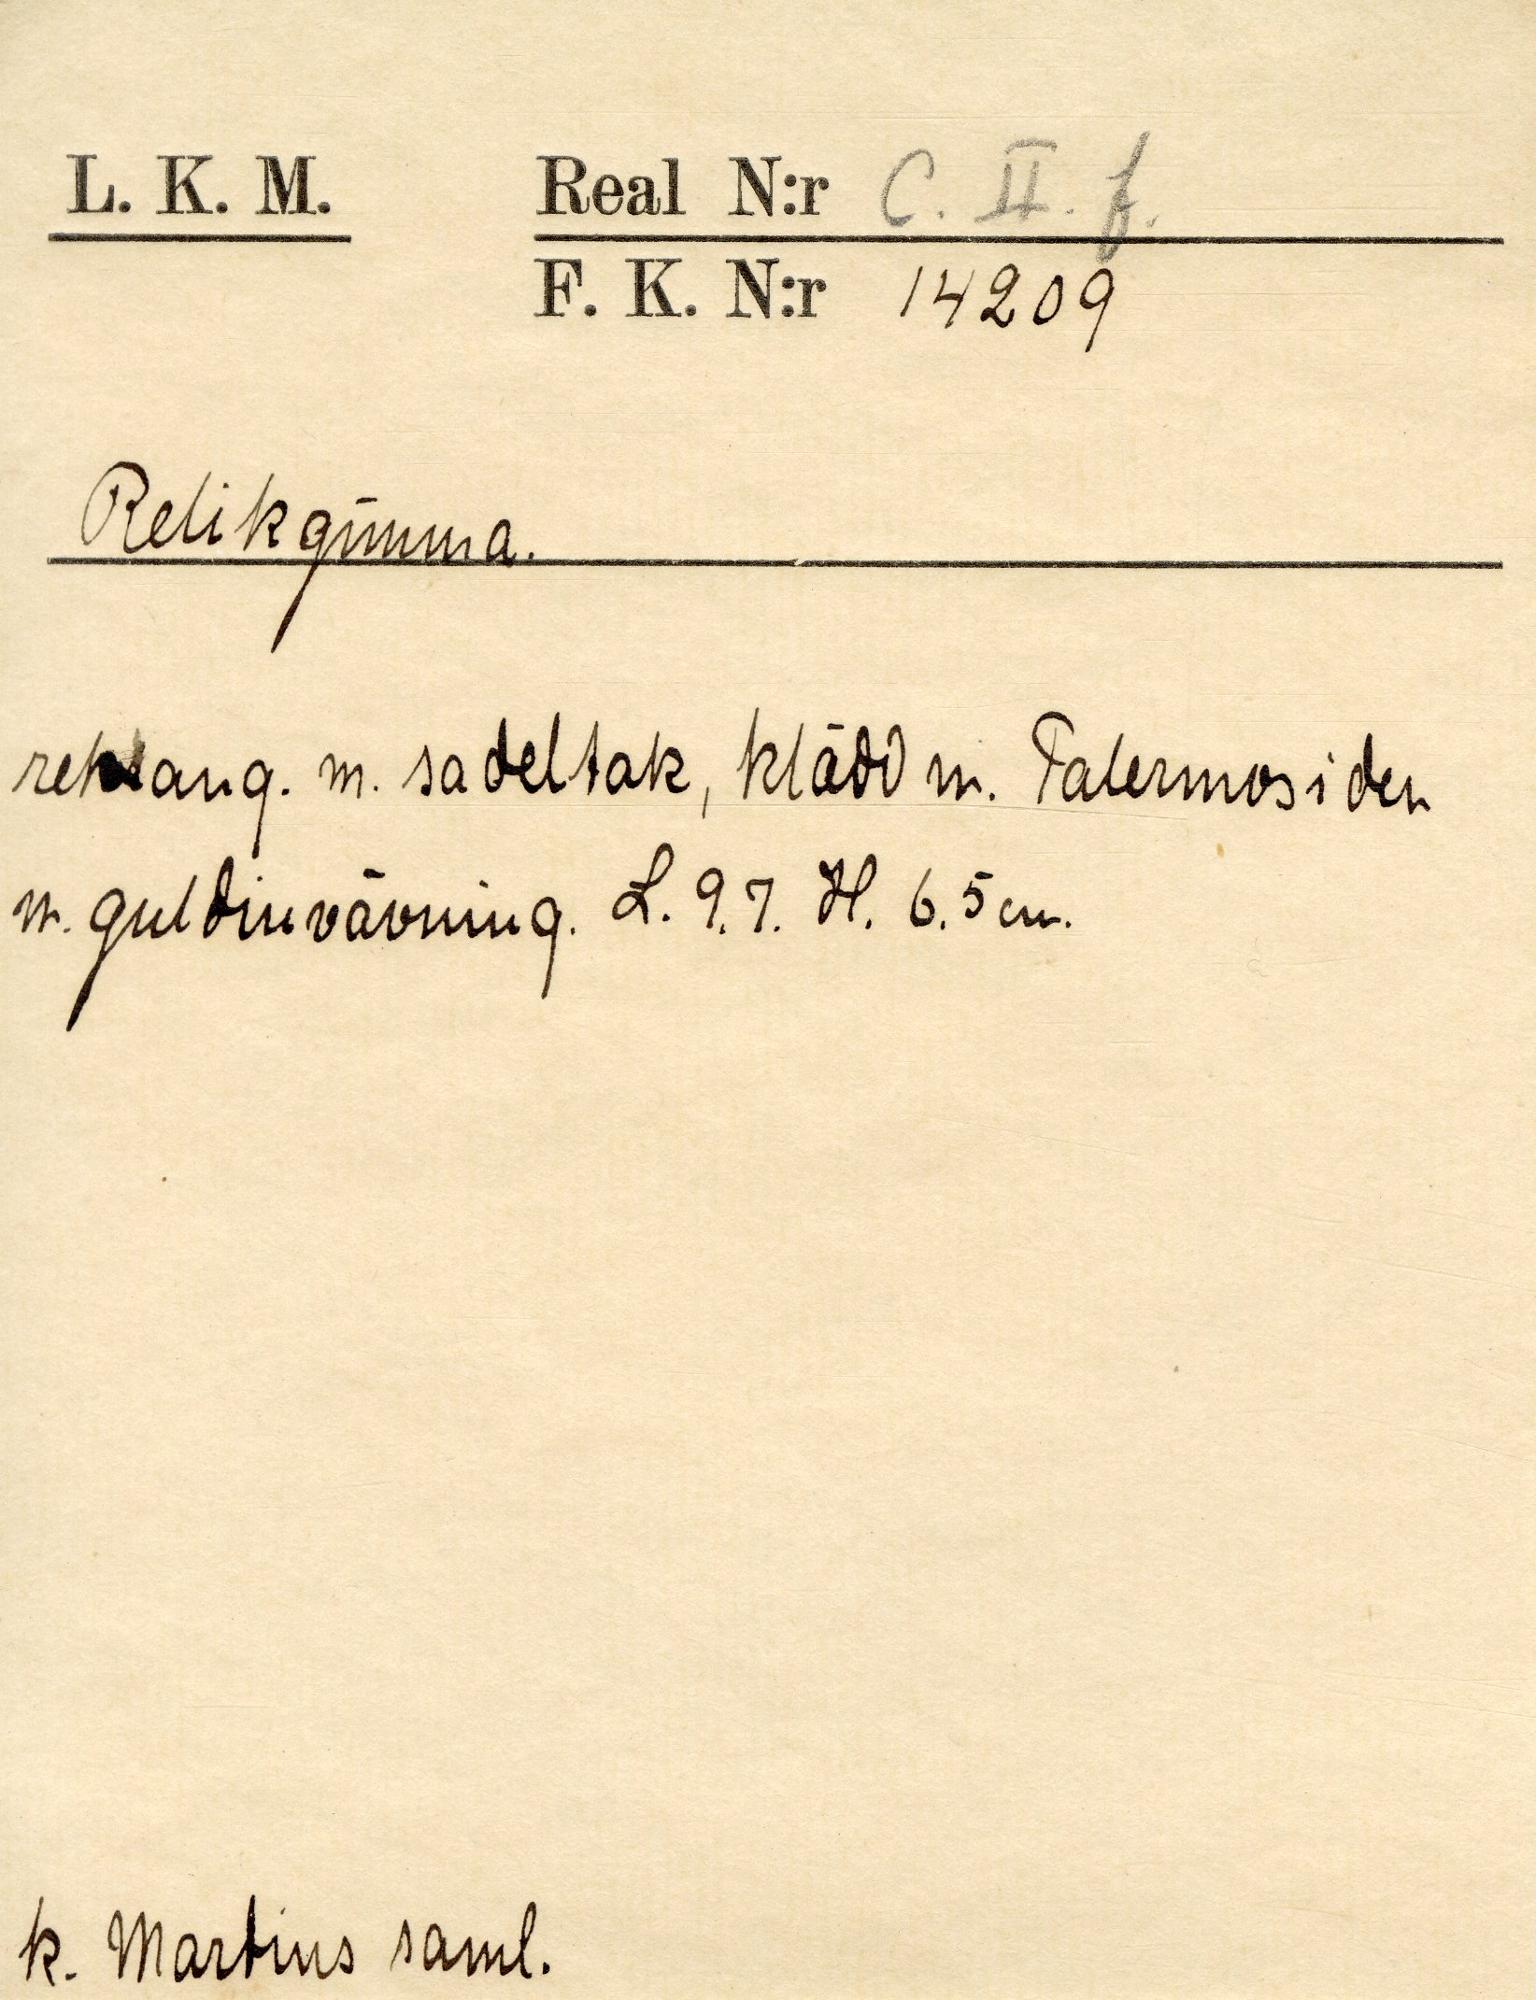 L. K. M. Real N:r C. II. f.
F. K. N:r 14209
Relikgömma.
rektang. m. sadeltak, klädd m. Palermosiden
m. guldinvävning. L. 9.7. H. 6.5 cm.
k. Martins saml.